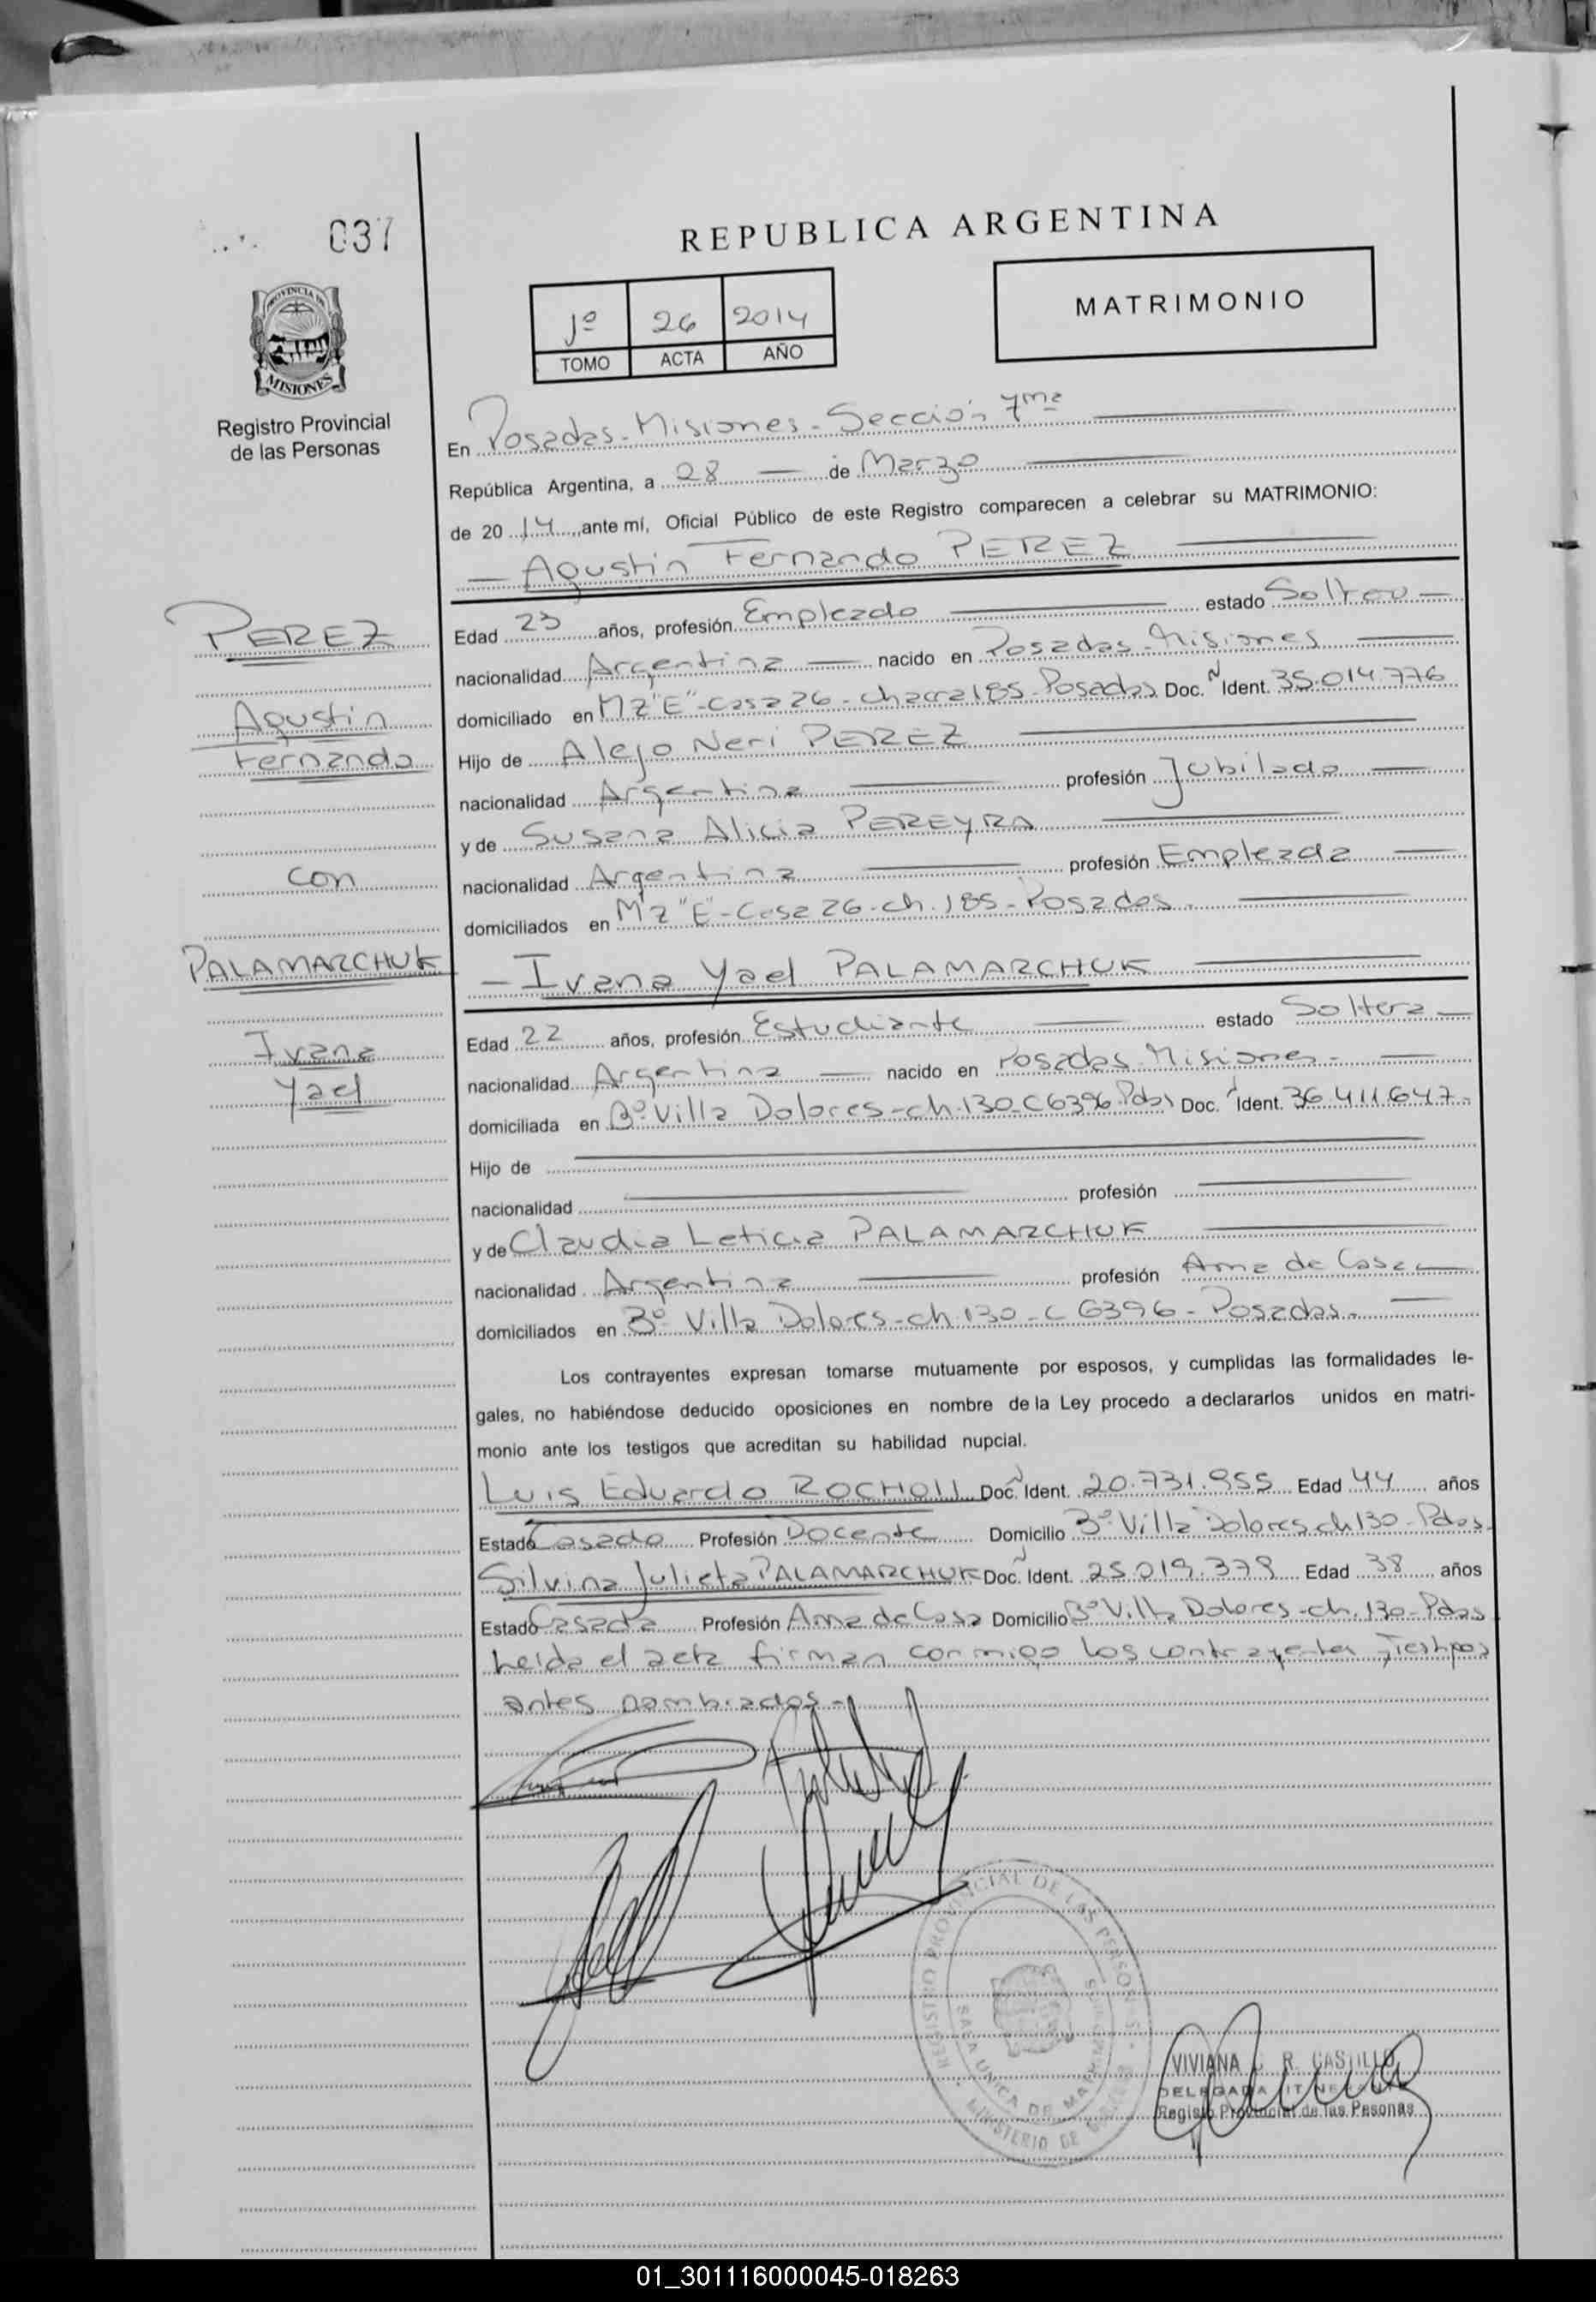 037
REPUBLICA ARGENTINA
PROVINCIA DE
MISIONES
Registro Provincial
de las Personas
1º 26 2014
TOMO ACTA AÑO
MATRIMONIO
En Posadas - Misiones - Sección 7ma
República Argentina, a 28 de Marzo
de 20 14 ante mí, Oficial Público de este Registro comparecen a celebrar su MATRIMONIO:
Agustín Fernando PEREZ
PEREZ
Agustin
Fernando
con
PALAMARCHUK
Ivana
Yael
Edad 23 años, profesión Empleado estado Soltero
nacionalidad Argentina nacido en Posadas - Misiones
domiciliado en Mz "E" - Casa 26 - chacra 185 - Posadas Doc. N Ident. 35.014.776
Hijo de Alejo Neri PEREZ
nacionalidad Argentina profesión Jubilado
y de Susana Alicia PEREYRA
nacionalidad Argentina profesión Empleada
domiciliados en Mz "E" - Casa 26 - ch. 185 - Posadas -
Ivana Yael PALAMARCHUK
Edad 22 años, profesión Estudiante estado Soltera
nacionalidad Argentina nacido en Posadas - Misiones -
domiciliada en Bº Villa Dolores - ch. 130 - C 6396 Pdas Doc. Ident. 36.411.647 -
Hijo de
nacionalidad profesión
y de Claudia Leticia PALAMARCHUK
nacionalidad Argentina profesión Ama de Casa
domiciliados en Bº Villa Dolores - ch. 130 - C 6396 - Posadas -
Los contrayentes expresan tomarse mutuamente por esposos, y cumplidas las formalidades le-
gales, no habiéndose deducido oposiciones en nombre de la Ley procedo a declararlos unidos en matri-
monio ante los testigos que acreditan su habilidad nupcial.
Luis Eduardo ROCHOLL Doc. Ident. 20.731.955 Edad 44 años
Estado Casado Profesión Docente Domicilio Bº Villa Dolores ch 130 - Pdas -
Silvina Julieta PALAMARCHUK Doc. Ident. 25.019.379 Edad 38 años
Estado Casada Profesión Ama de Casa Domicilio Bº Villa Dolores - ch. 130 - Pdas
Leída el acta firman conmigo los contrayentes y Testigos
antes nombrados -
REGISTRO PROVINCIAL DE LAS PERSONAS
SALA UNICA DE MATRIMONIOS
MINISTERIO DE GOBIERNO
VIVIANA R. CASTILLO
DELEGADA ITINERANTE
Registro Provincial de las Pesonas
01_301116000045-018263